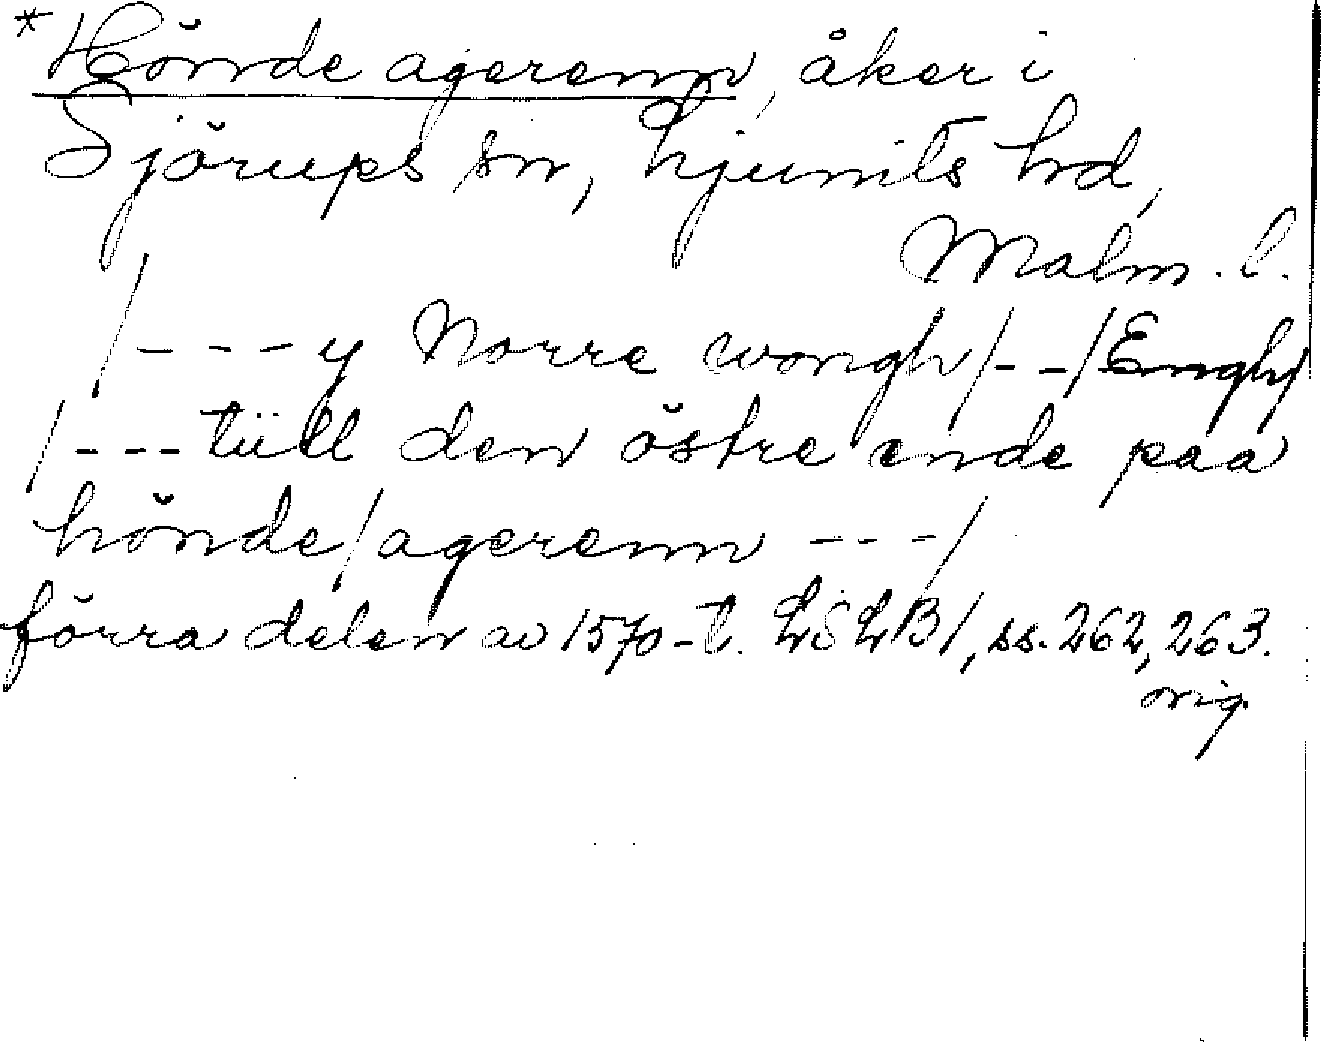 *Hönde agerenn, åker i
Sjörups sn, Ljunits hd,
Malm. l.
/---y Norre wongh/--/Engh/
/---tüll den östre ende paa
hönde/agerenn ---/
förra delen av 1570-t. LSLB1, ss. 262, 263.
orig.